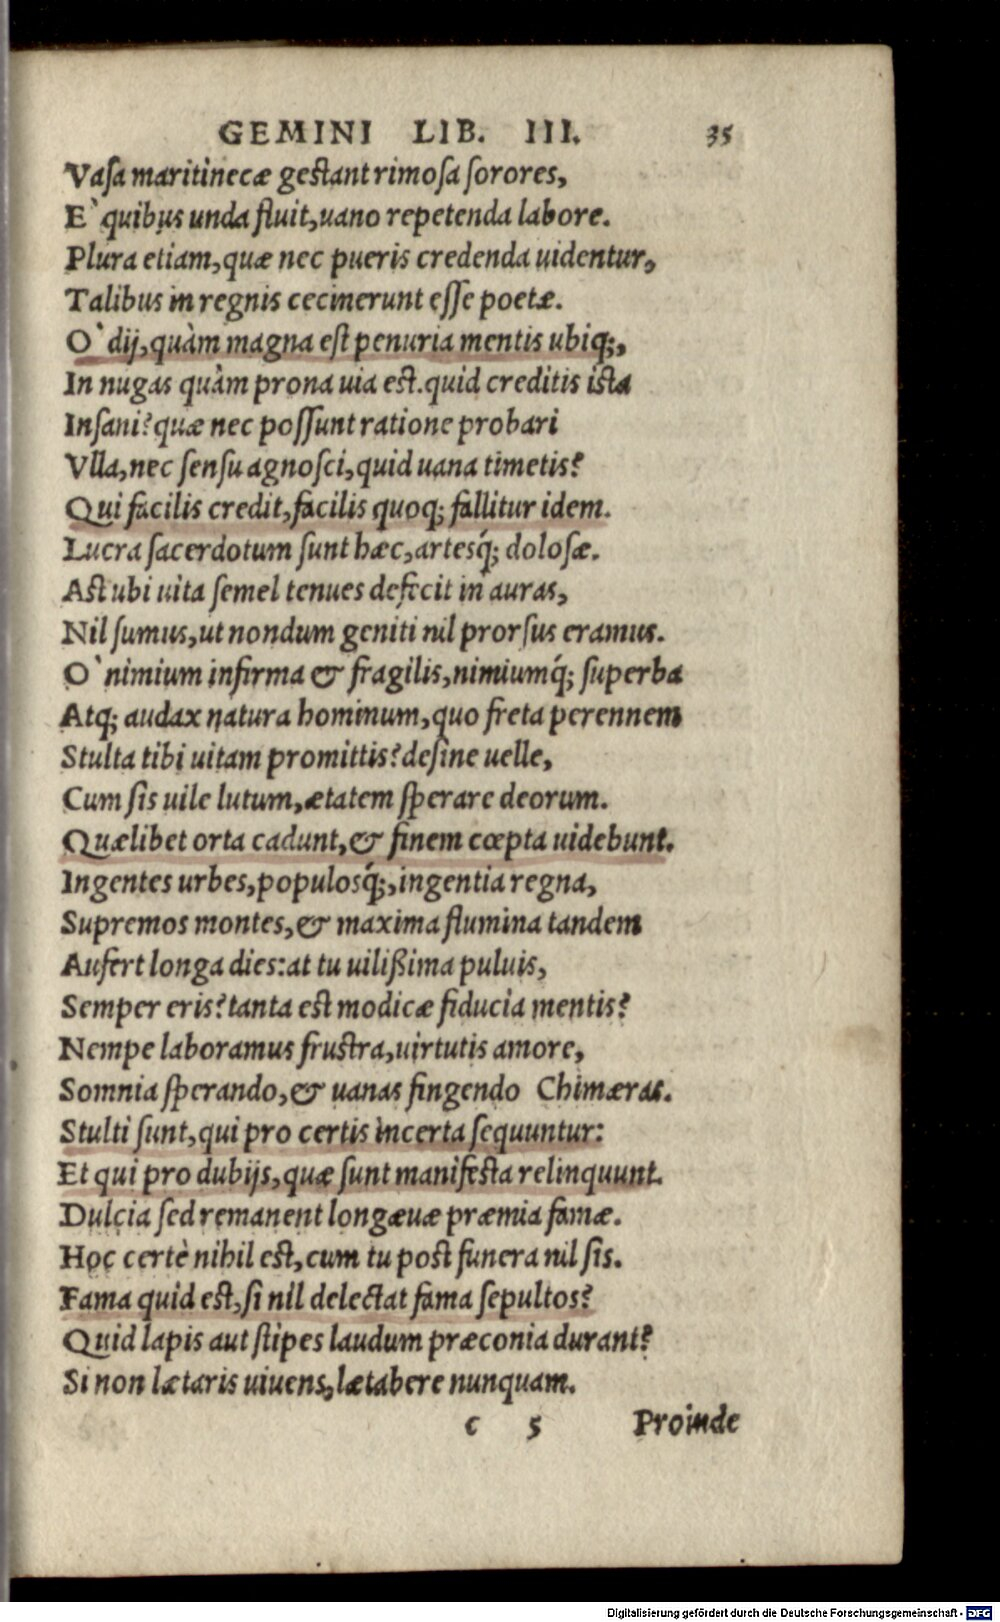 GEMINI LIB. III. 35
Vaſa maritinecæ geſtant rimoſa ſorores,
E` quibus unda fluit, uano repetenda labore.
Plura etiam, quæ nec pueris credenda uidentur,
Talibus in regnis cecinerunt eſſe poetæ.
O` dij, quàm magna eſt penuria mentis ubiq;,
In nugas quàm prona uia eſt. quid creditis iſta
Inſani? quæ nec poſſunt ratione probari
Vlla, nec ſenſu agnoſci, quid uana timetis?
Qui facilis credit, facilis quoq; fallitur idem.
Lucra ſacerdotum ſunt hæc, artesq́; doloſæ.
Aſt ubi uita ſemel tenues defecit in auras,
Nil ſumus, ut nondum geniti nil prorſus eramus.
O` nimium infirma & fragilis, nimiumq́; ſuperba
Atq; audax natura hominum, quo freta perennem
Stulta tibi uitam promittis? deſine uelle,
Cum ſis uile lutum, ætatem ſperare deorum.
Quælibet orta cadunt, & finem cœpta uidebunt.
Ingentes urbes, populosq́;, ingentia regna,
Supremos montes, & maxima flumina tandem
Aufert longa dies: at tu uilißima puluis,
Semper eris? tanta eſt modicæ fiducia mentis?
Nempe laboramus fruſtra, uirtutis amore,
Somnia ſperando, & uanas fingendo Chimæras.
Stulti ſunt, qui pro certis incerta ſequuntur:
Et qui pro dubijs, quæ ſunt manifeſta relinquunt.
Dulcia ſed remanent longæuæ præmia famæ.
Hoc certè nihil eſt, cum tu poſt funera nil ſis.
Fama quid eſt, ſi nil delectat fama ſepultos?
Quid lapis aut ſtipes laudum præconia durant?
Si non lætaris uiuens, lætabere nunquam.
c 5 Proinde
Digitalisierung gefördert durch die Deutsche Forschungsgemeinschaft - DFG